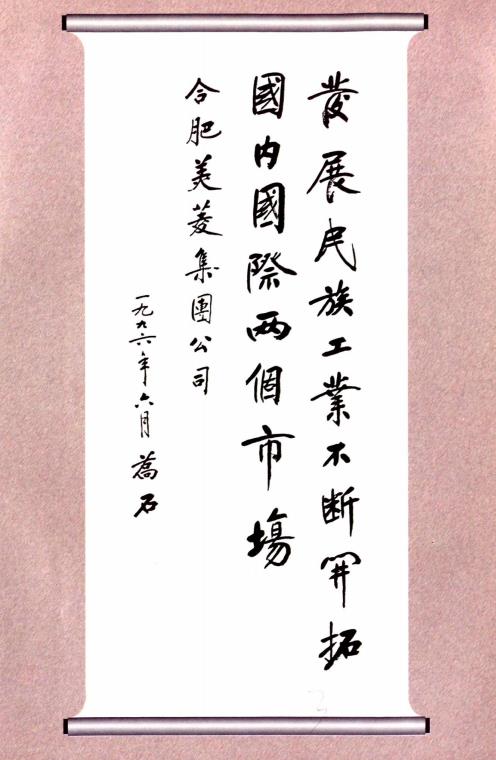 發展民族工業不断開拓
國内國際两個市場
合肥美菱集團公司
一九九六年六月 喬石